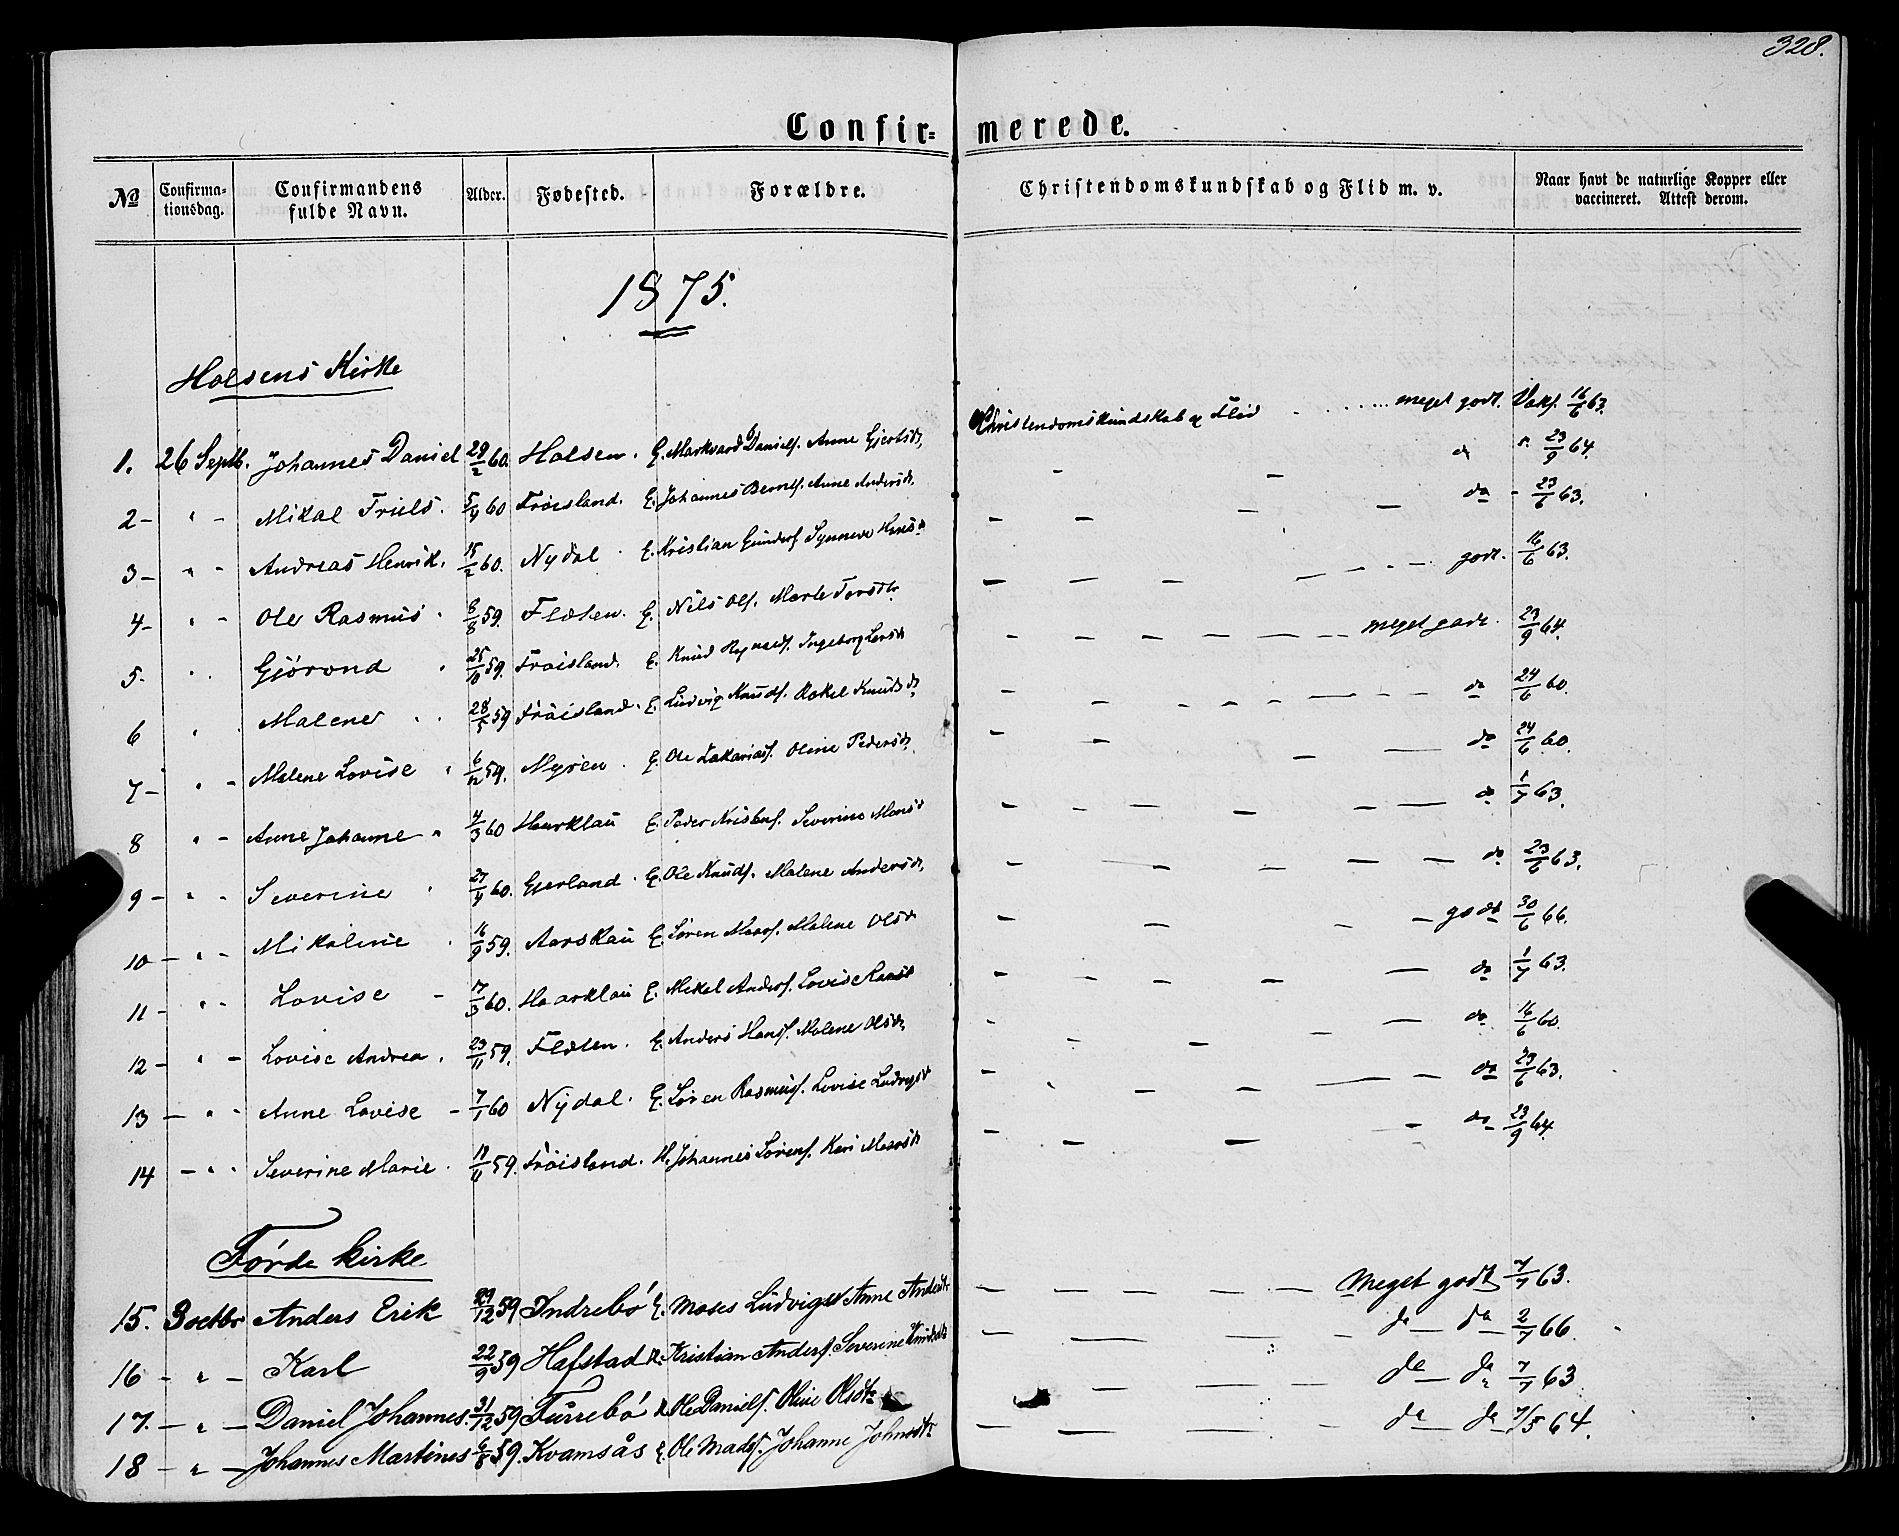 328.
Confir= merede.
No Confirma-tionsdag. Confirmandens fulde Navn. Alder. Fødested. Forældre. Christendomskundskab og Flid m. v. Naar havt de naturlige Kopper eller vaccineret. Attest derom.
1875.
Holsens Kirke
1. 26 Septb. Johannes Daniel 29/2 60. Holsen. E. Markvard Daniels. Anne Gjertsdr. Christendomskundskab og Flid meget godt. Vakc. 16/6 63.
2 - " - Mikal Friis. 5/4 60 Frøisland. E. Johannes Bernts. Anne Andersdr. do " 23/9 64.
3 - " - Andreas Henrik. 15/2 60. Nydal E. Kristian Gunders. Synneve Hansdr do - 23/6 63.
4 - " - Ole Rasmus 8/8 59. Flaten. E. Nils Ols. Marte Torsdr. godt. 16/6 63.
5 - " Gjørond 25/10 59. Frøisland. E. Knud Ingeborg Larsdr meget godt. 23/9 64.
6 " Malene 28/5 59 Frøisland. E. Ludvig Knuds. Rakel Knudsdr do 24/6 60.
7 - " - Malene Lovise 6/12 59. Myren E. Ole Zakarias. Oline Pedersdr. do 24/6 60.
8 " - Anne Johanne " 4/3 60 Haarklau E. Peder Kristens. Severine Monsdr do 1/7 63.
9 - " - Severine 27/4 60. Gjerland. E. Ole Knuds. Malene Andersdr. do 23/6 63.
10 - " - Mikaline 16/9 59. Aarskau E. Søren Mads. Malene Olsdr godt 30/6 66.
11 - " - Lovise - 17/3 60. Haarklau E. Mikal Anders. Lovise do 1/7 63.
12 - " - Lovise Andrea. 23/11 59. Flaten. E. Anders Hans. Malene Olsdr. do 16/6 60.
13 - " - Anne Lovise - 7/1 60 Nydal. E. Søren Rasmus. Lovise Ludvigsdr do 23/6 63.
14 - " - Severine Marie. 18/11 59. Frøisland. E. Johannes Sørens. Kari Madsdr do 23/9 64.
Førde kirke
15. 3 octbr Anders Erik 29/12 59 Indrebø E. Moses Ludvigs. Anne Andersdtr Meget godt 7/7 63.
16 - " - Karl 22/9 59 Hafstad E. Kristian Anders. Severine Knudsdtr do - do - 2/7 66.
17. - " - Daniel Johannes. 31/12 59 Furrebø E. Ole Daniels. Oline Olsdtr do - do 7/7 63
18 - " - Johannes Martines 6/8 59. Kvamsås E. Ole Mads. Johanne Johnsdtr do - do 7/5 64.